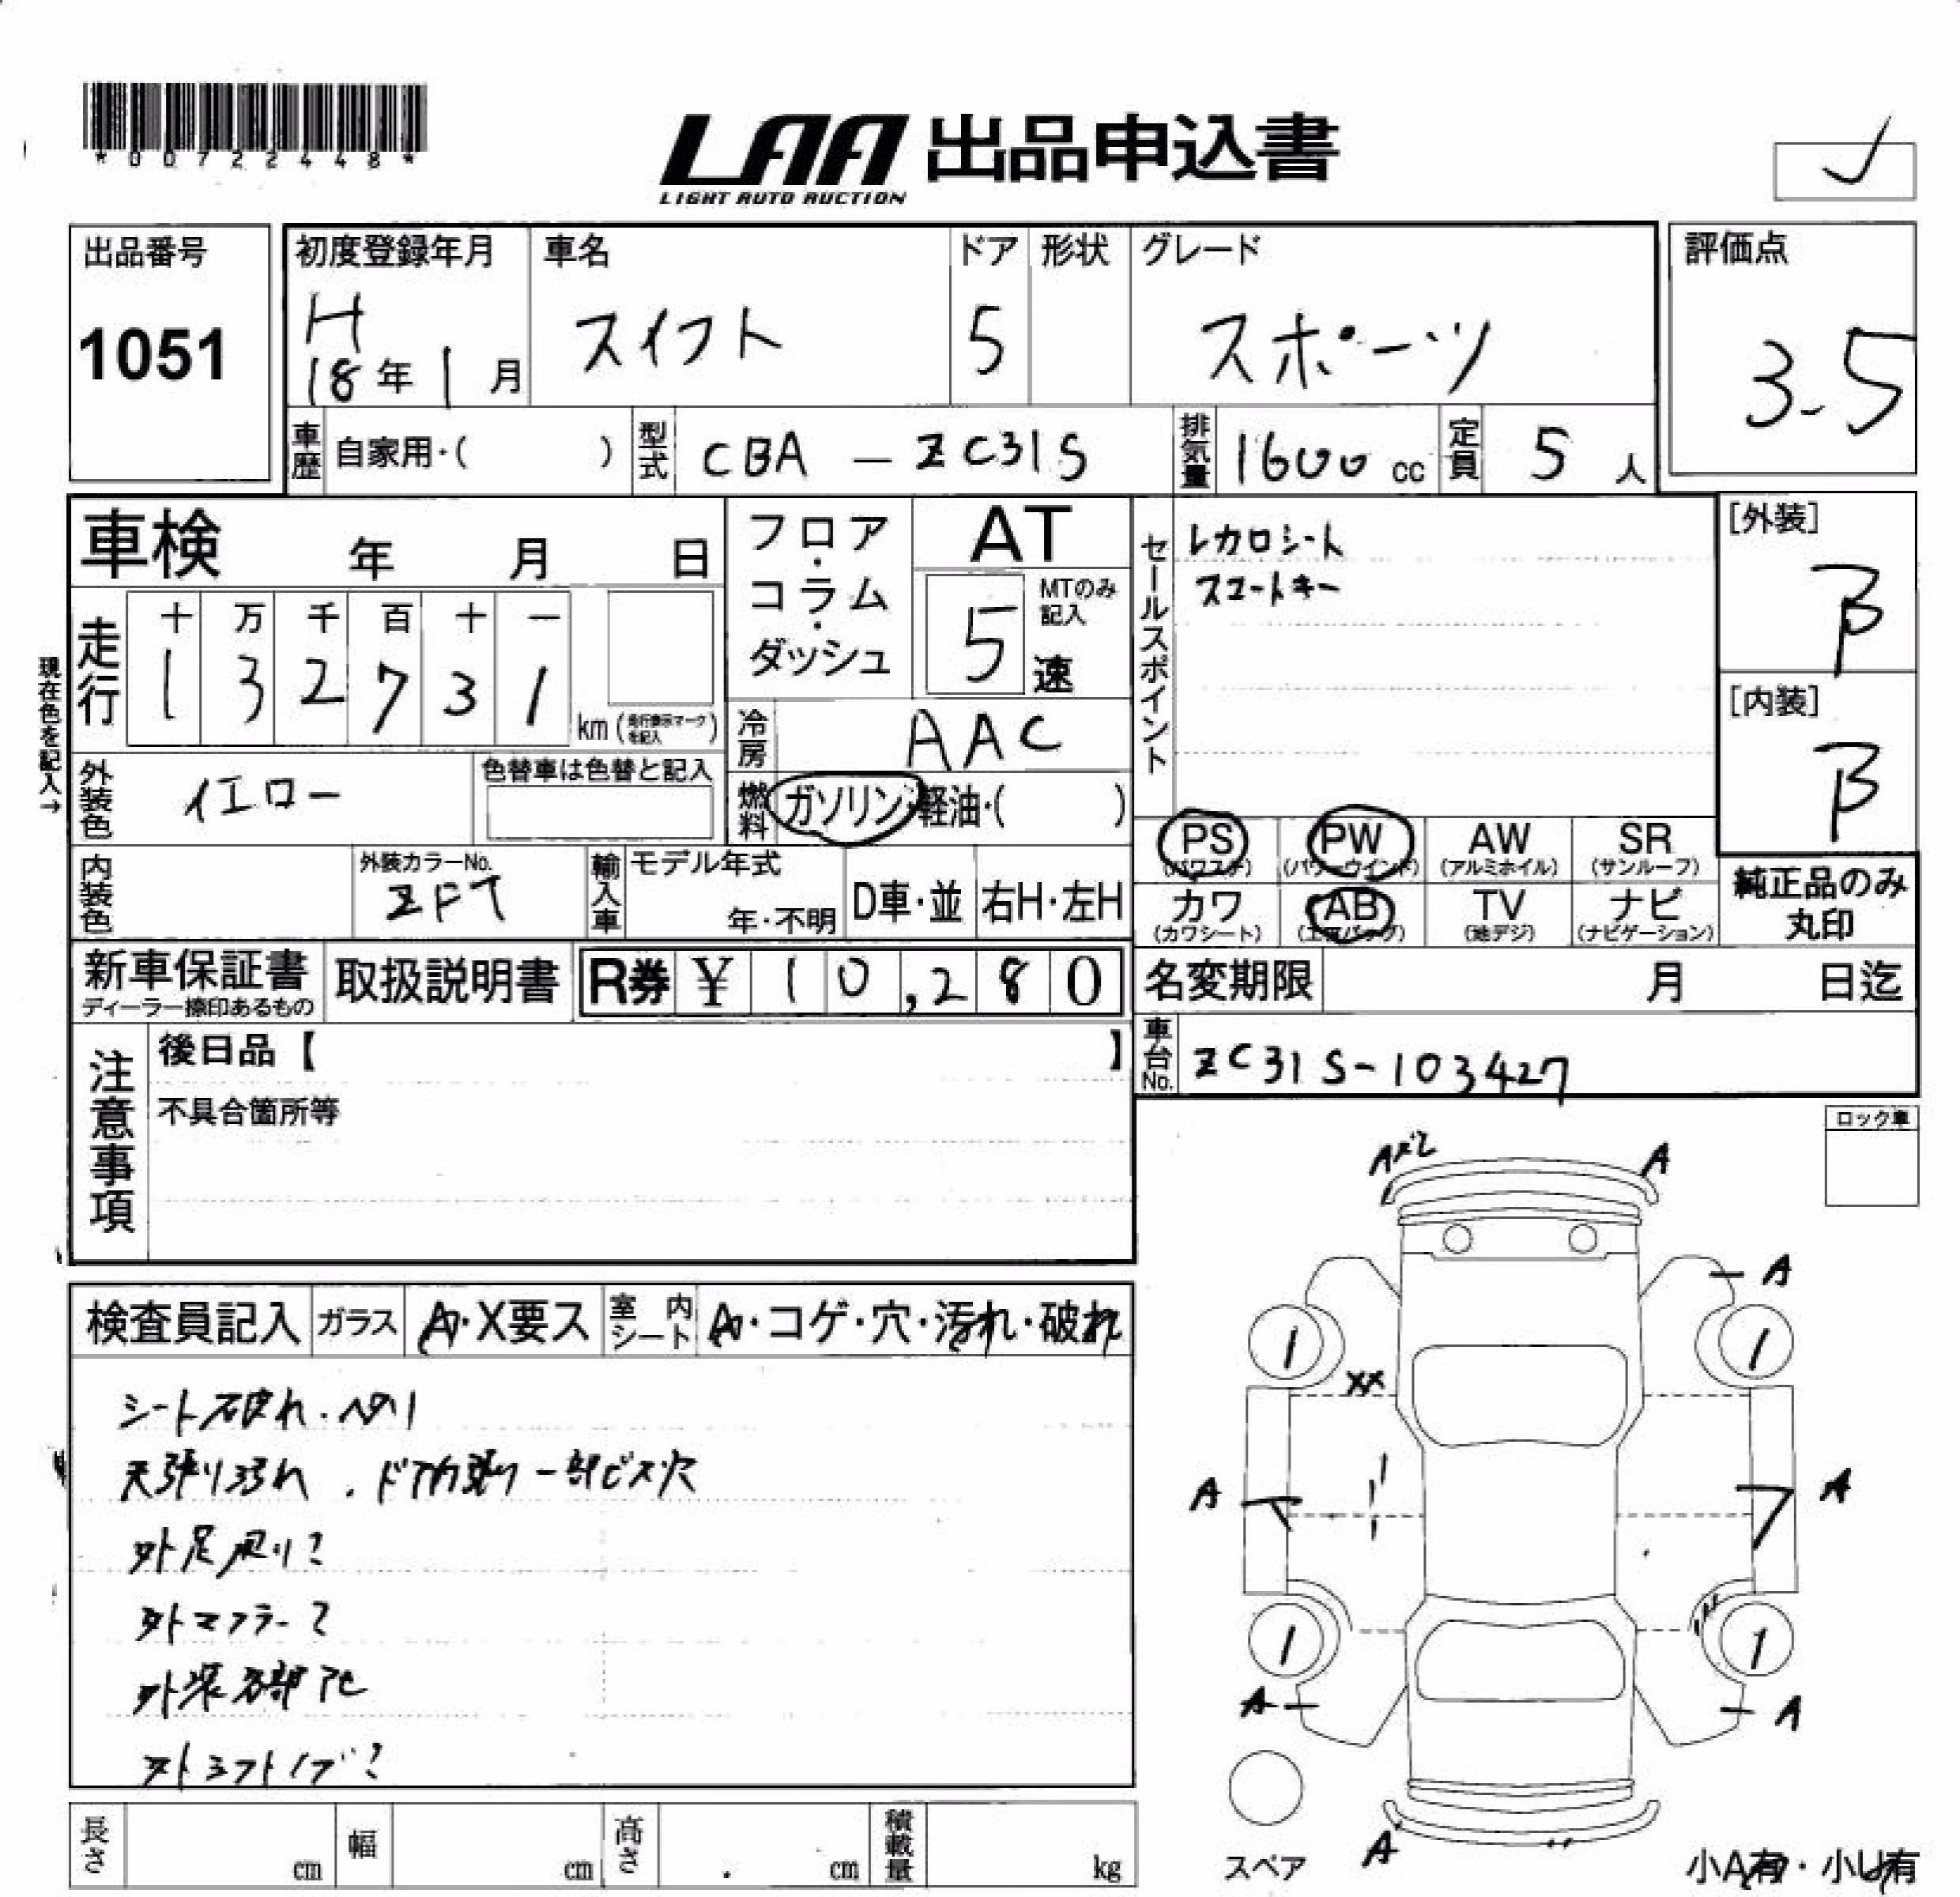 *00722448*
LAA 出品申込書
LIGHT AUTO AUCTION
出品番号
1051
初度登録年月
H
18年1月
車名
スイフト
ドア
5
形状
グレード
スポーツ
評価点
3.5
車歴
自家用・( )
型式
CBA - ZC31S
排気量
1600 cc
定員
5 人
車検 年 月 日
フロア・コラム・ダッシュ
AT
5 速
MTのみ記入
セールスポイント
レカロシート
スマートキー
[外装]
B
[内装]
B
現在色を記入→
走行
十 万 千 百 十 一
1 3 2 7 3 1
km (走行表示マークを記入)
冷房
AAC
外装色
イエロー
色替車は色替と記入
燃料
ガソリン・軽油・( )
PS
(パワステ)
PW
(パワーウインド)
AW
(アルミホイル)
SR
(サンルーフ)
内装色
外装カラーNo.
ZFT
輸入車
モデル年式
年・不明
D車・並
右H・左H
カワ
(カワシート)
AB
(エアバッグ)
TV
(地デジ)
ナビ
(ナビゲーション)
純正品のみ
丸印
新車保証書
ディーラー捺印あるもの
取扱説明書
R券 ¥ 10,280
名変期限 月 日迄
車台No.
ZC31S-103427
注意事項
後日品【 】
不具合箇所等
ロック車
検査員記入
ガラス
A・X要ス
室内シート
A・コゲ・穴・汚れ・破れ
シート破れ・ヘタリ
天張り汚れ . ドア内張り一部ビス穴
外足廻り?
外マフラー?
外装各部
外シフトノブ?
A
A
A
1
1
XX
A
A
1
1
A
A
A
スペア
小A有・小U有
長さ cm
幅 cm
高さ cm
積載量 kg